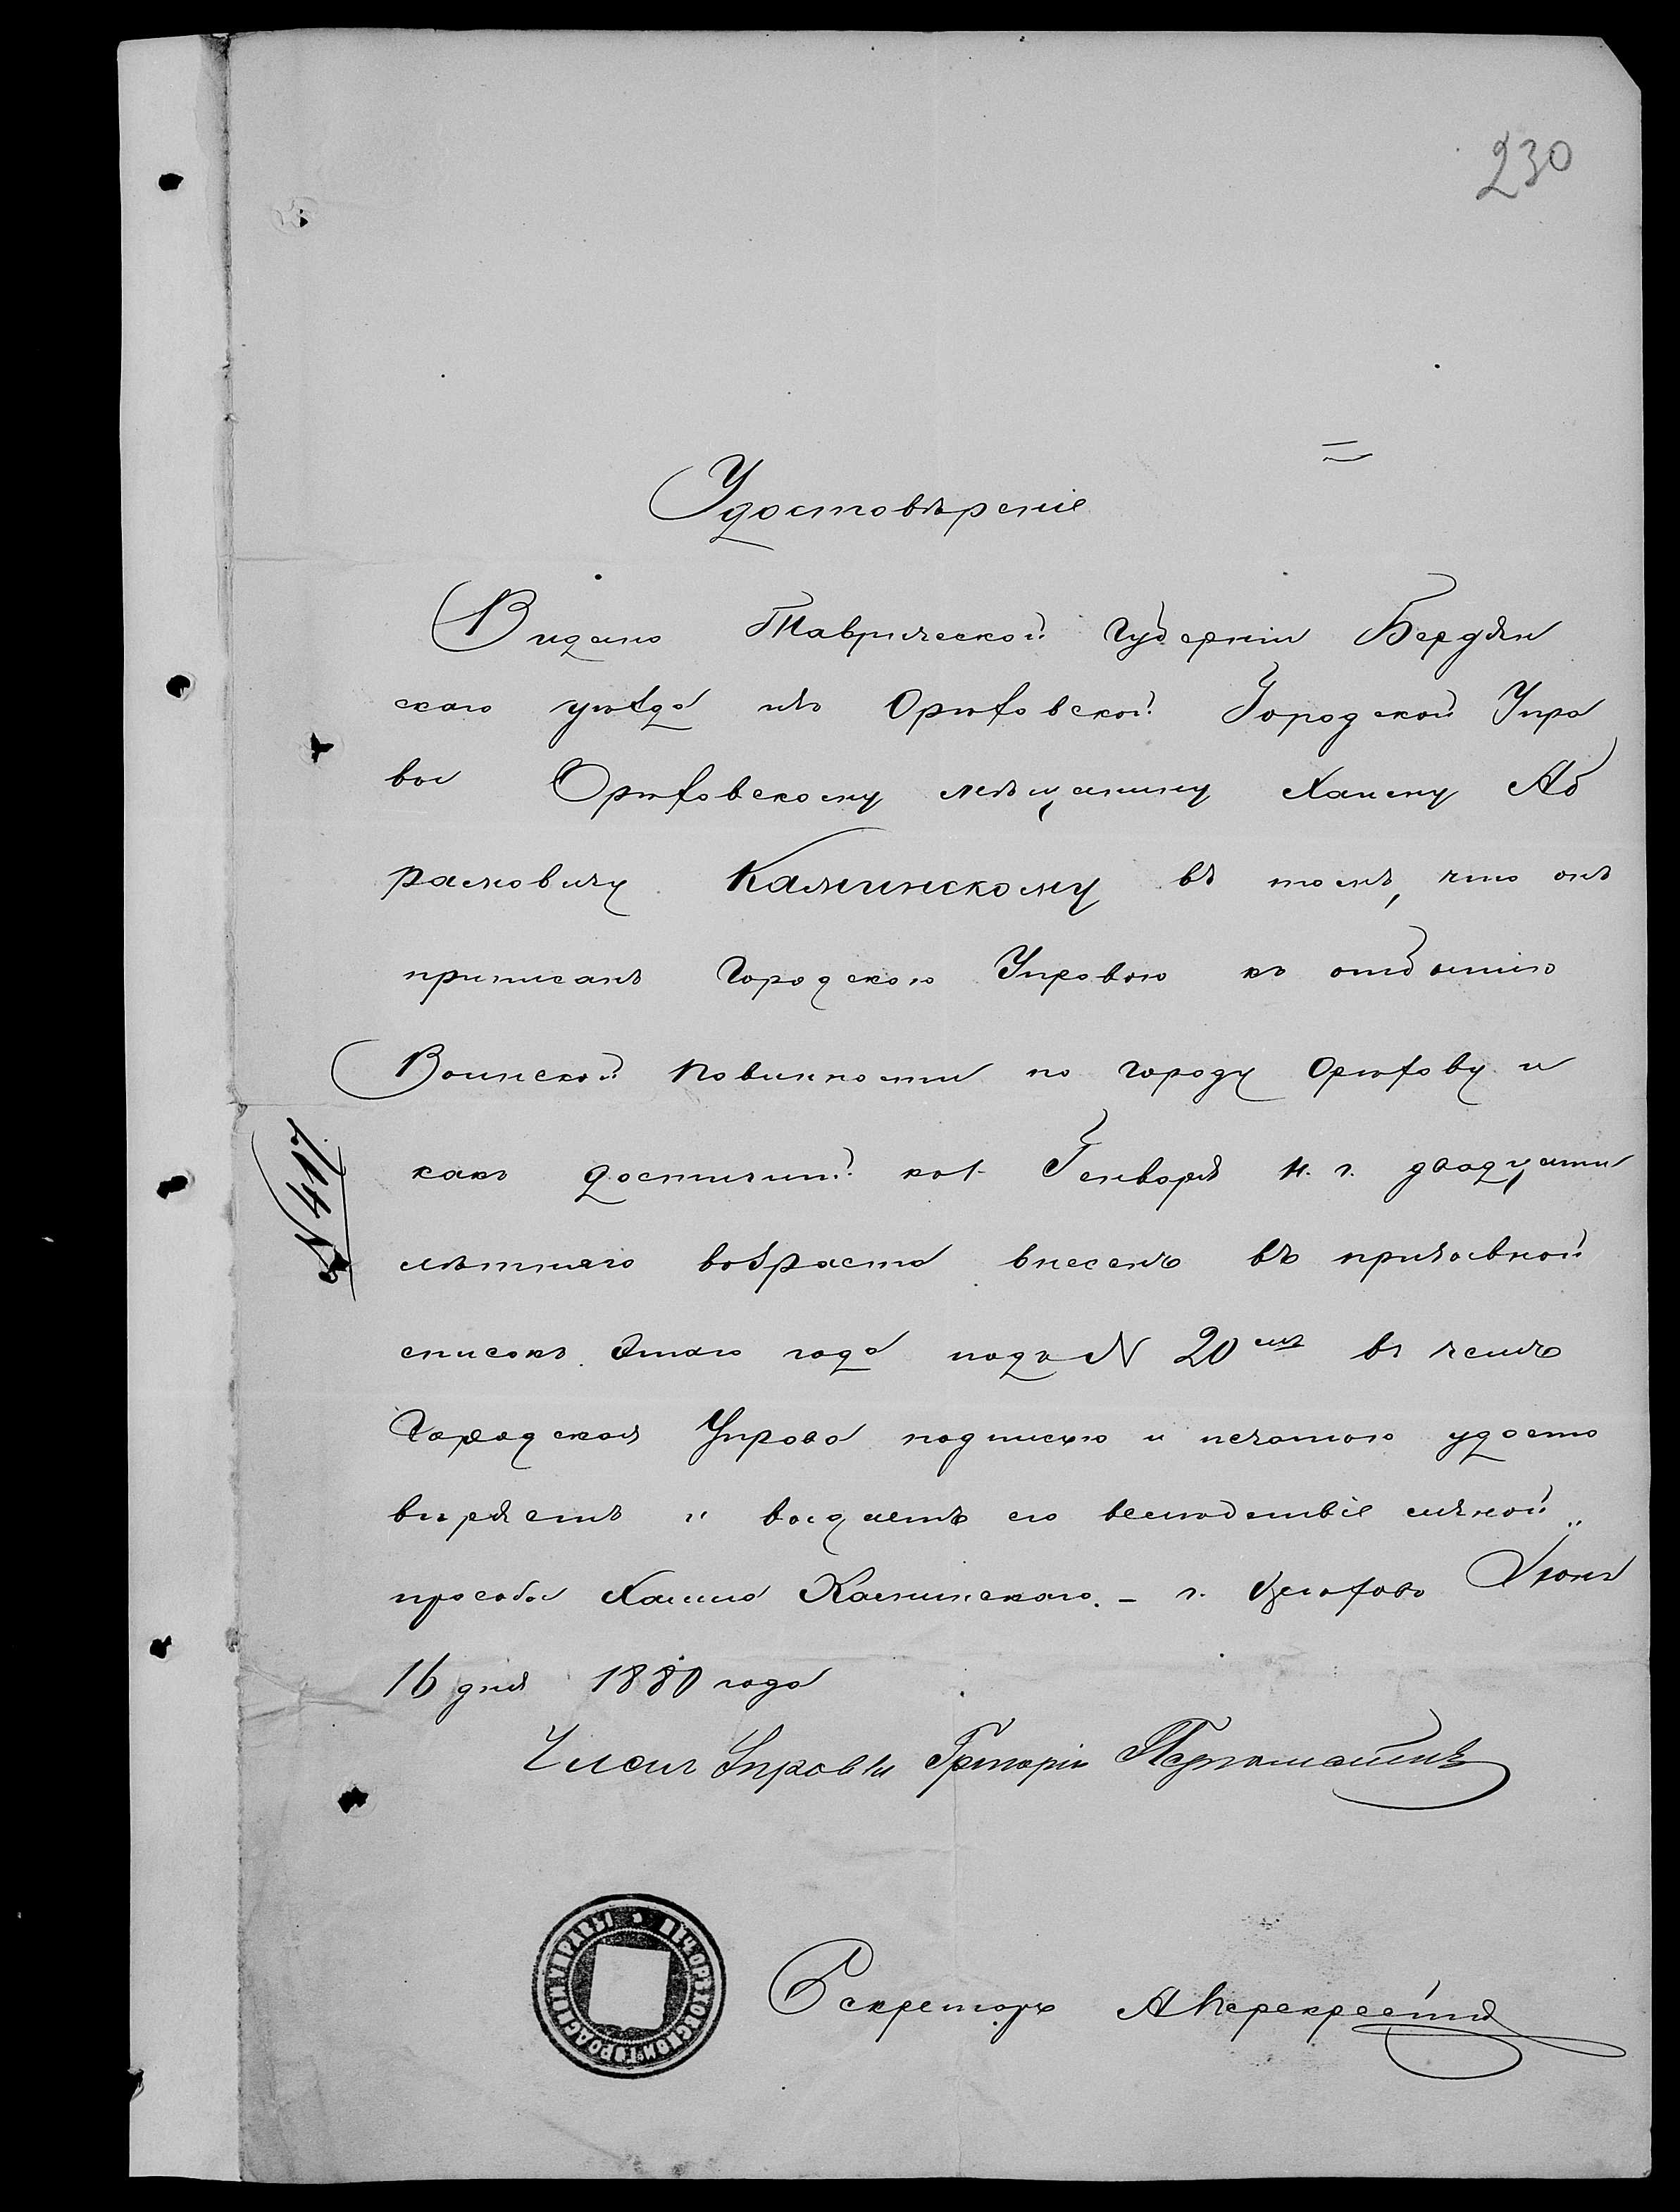 230
Удостовѣреніе
Видано Таврической Губерніи Бердян
скаго уѣзда изъ Орѣховской Городской Упра
вы Орѣховскому мѣщанину Хаиму Аб
рамовичу Каминскому въ томъ, что онъ
приписанъ Городскою Управою къ отбытію
Воинской повинности по городу Орѣхову и
какъ достигшій къ 1 Генваря н. г. двадцати
лѣтняго возраста внесенъ въ призывной
списокъ этаго года подъ N 20мъ въ чемъ
Городская Управа подписью и печатью удосто
вѣряетъ и выдаетъ его вслѣдствіе личной
просьбы Хаима Каминскаго. – г. Орѣховъ Іюня
16 дня 1880 года
№ 417
Членъ Управы Григорій
Секретарь А Перекрестъ
ПЕЧ. ОРѢХОВСКОЙ ГОРОДСКОЙ УПРАВЫ